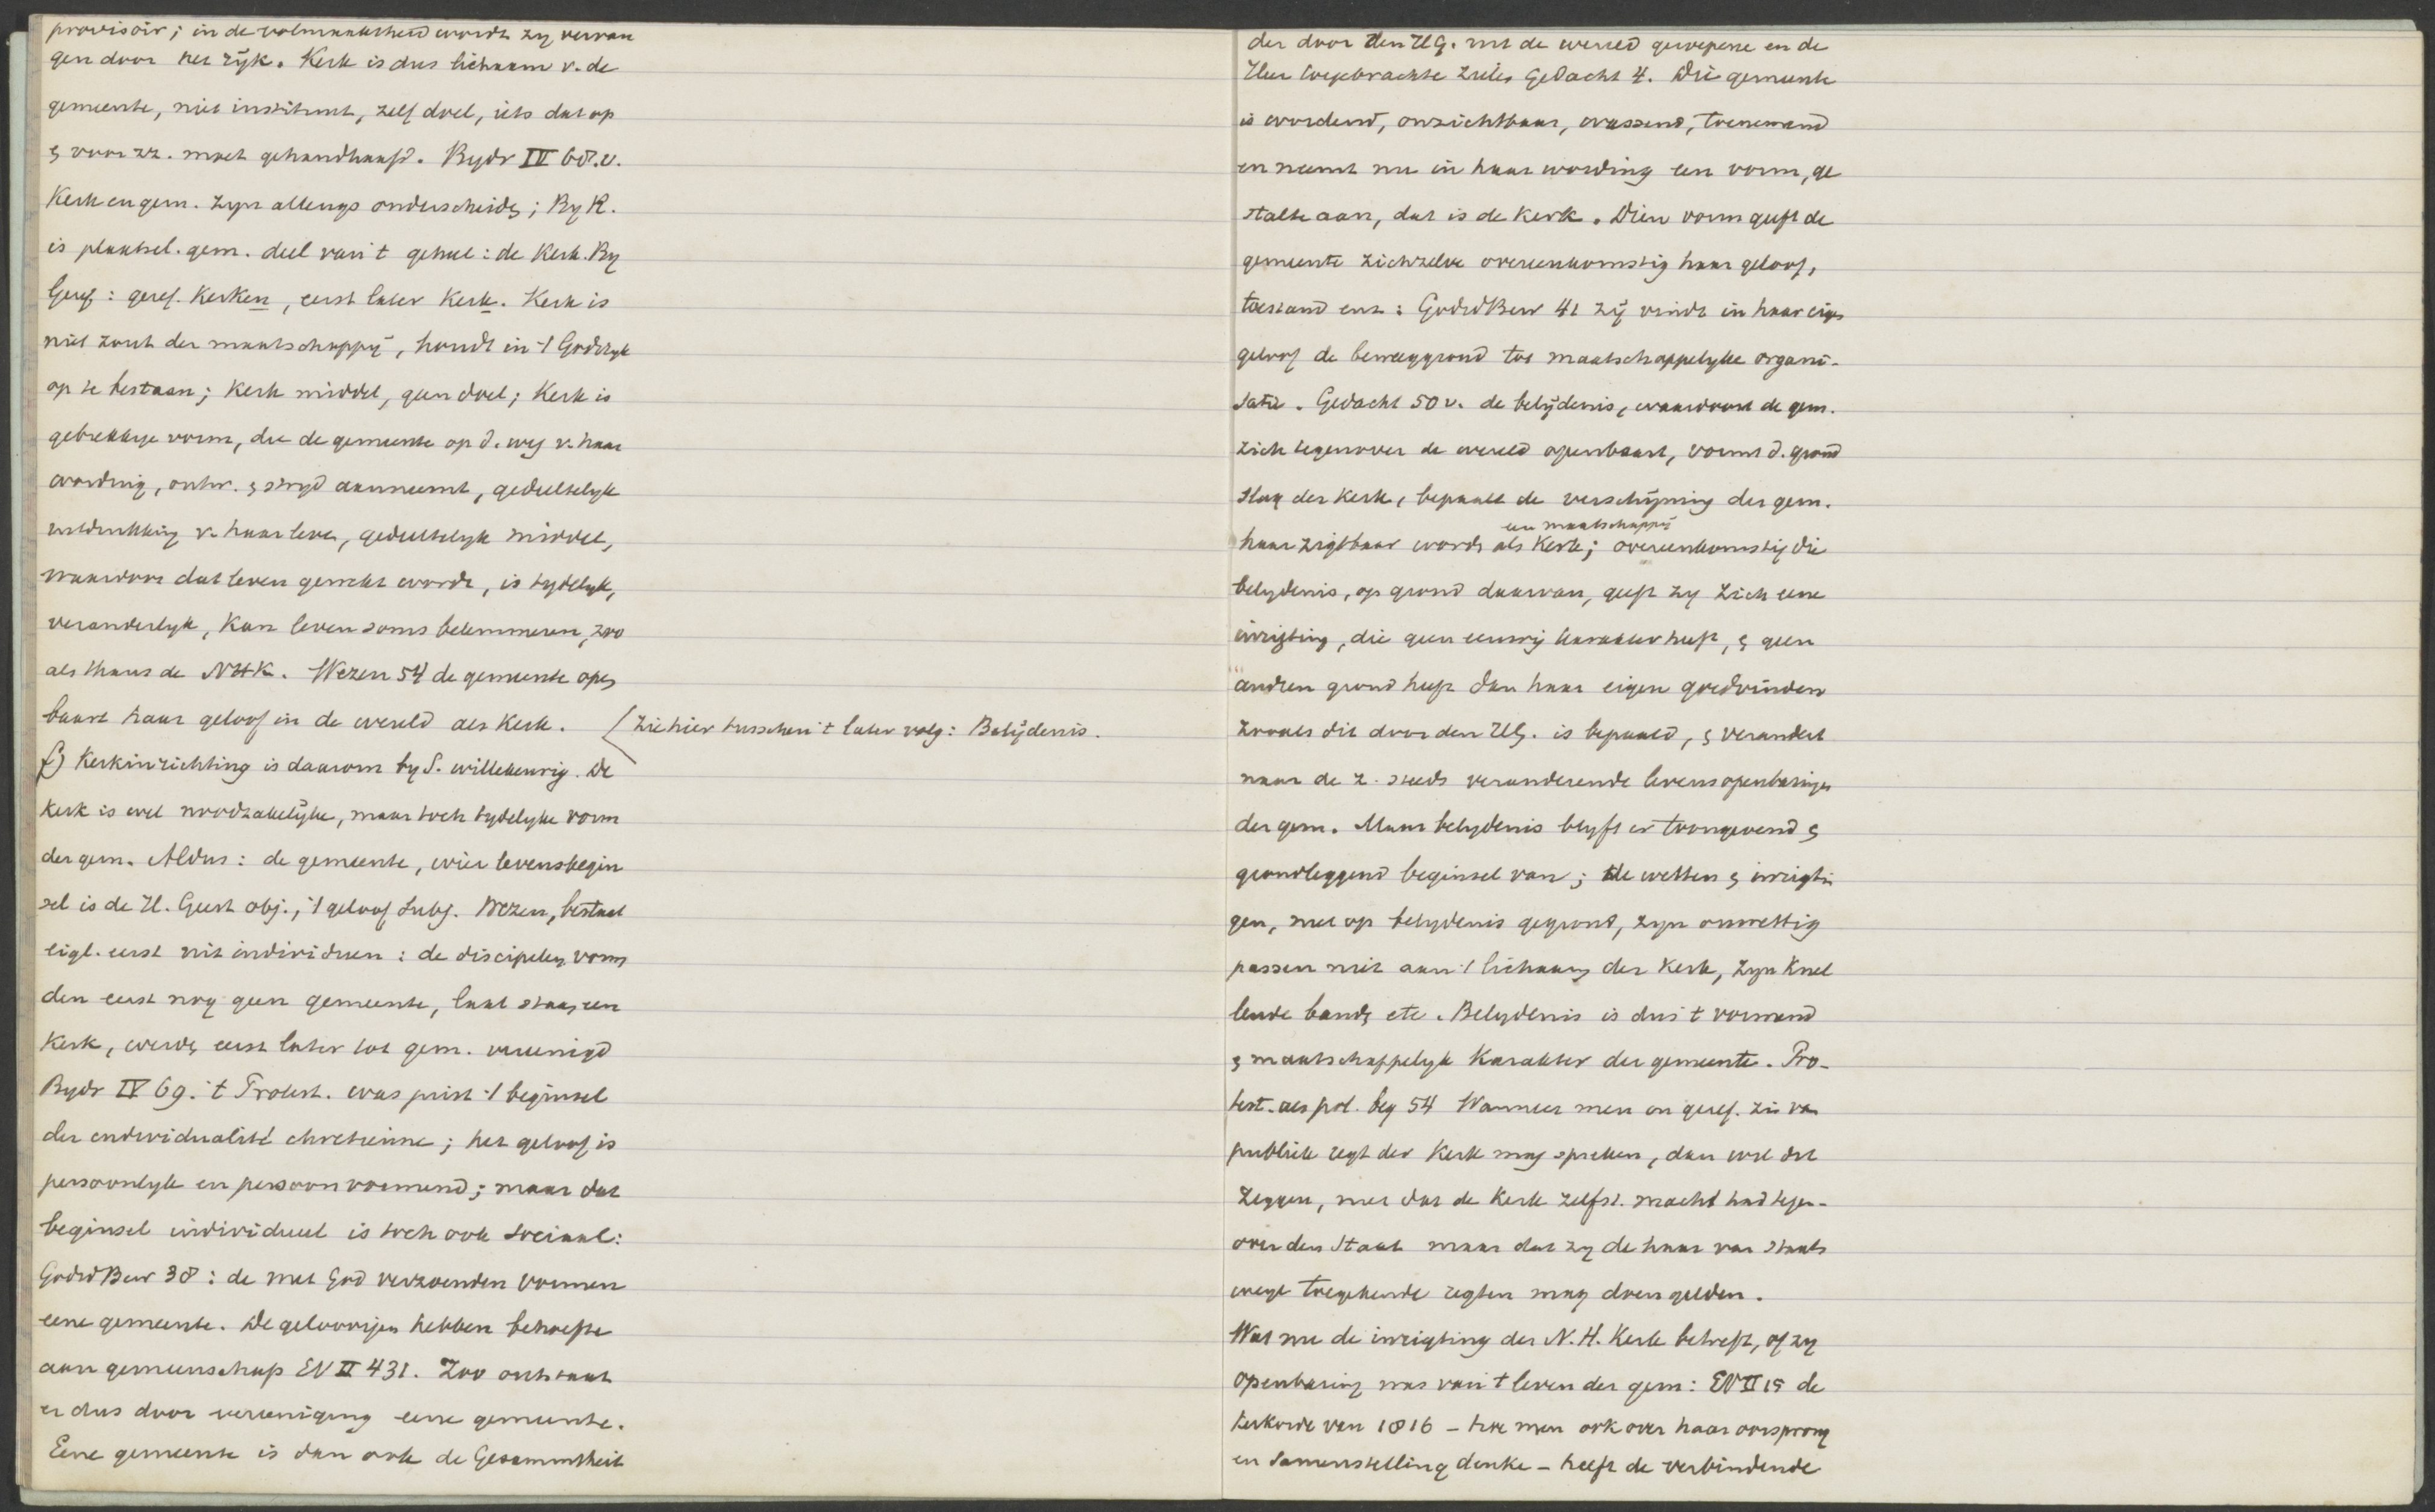 provisoir; in de volmaaktheid wordt zy vervan
gen door het ryk. Kerk is dus lichaam v. de
gemeente, niet instituut, zelf doel, iets dat op
& voor zz. moet gehandhaafd. Bydr IV 68.v.
Kerk en gem. zyn allengs onderscheid; By R.
is plaatsel. gem. deel van 't geheel: de Kerk. By
Geref: geref. Kerken, eerst later Kerk. Kerk is
niet zout der maatschappy, houdt in 't Godsryk
op te bestaan; Kerk middel, geen doel; Kerk is
gebrekkige vorm, die de gemeente op d. weg v. haar
wording, ontw. & stryd aanneemt, gedeeltelyk
uitdrukking v. haar leven, gedeeltelyk middel,
waardoor dat leven gewekt wordt, is tydelyk,
veranderlyk, kan leven soms belemmeren, zoo
als thans de NHK. Wezen 54 de gemeente open
baart haar geloof in de wereld als Kerk. (zie hier tusschen 't later volg: Belijdenis.
f) Kerkinrichting is daarom by S. willekeurig. De
Kerk is wel noodzakelijke, maar toch tydelyke vorm
der gem. Aldus: de gemeente, wier levensbegin
sel is de H. Geest obj., 't geloof subj. Wezen, bestaat
eigl. eerst uit individuen: de discipelen vorm
den eerst nog geen gemeente, laat staan een
Kerk, werden eerst later tot gem. vereenigd
Bydr IV 69. 't Protest. was juist 't beginsel
der individualité chretienne; het geloof is
persoonlyk en persoonvormend; maar dat
beginsel individueel is toch ook sociaal:
GodsdBew 38: de met God verzoenden vormen
eene gemeente. De geloovigen hebben behoefte
aan gemeenschap EV II 431. Zoo ontstaat
er dus door vereeniging eene gemeente.
Eene gemeente is dan ook de Gesammtheit
der door den HG. uit de wereld geroepene en de
Heer toegebrachte zielen Gedacht 4. Die gemeente
is wordend, onzichtbaar, wassend, toenemend
en neemt nu in haar wording een vorm, ge
stalte aan, dat is de Kerk. Dien vorm geeft de
gemeente zichzelve overeenkomstig haar geloof,
toestand enz: GodsdBew 41 zij vindt in haar eigen
geloof de beweeggrond tot maatschappelyke organi-
satie. Gedacht 50 v. de belijdenis, waardoor de gem.
zich tegenover de wereld openbaart, vormt d. grond
slag der Kerk, bepaalt de verschijning der gem.
een maatschappij
haar zigtbaar wordt als Kerk; overeenkomstig die
belydenis, op grond daarvan, geeft zy zich eene
inrigting, die geen eeuwig karakter heeft, & geen
andren grond heeft dan haar eigen goedvinden
zooals dit door den HG. is bepaald, & verandert
naar de z. steeds veranderende levensopenbaringen
der gem. Maar belydenis blyft er toongevend &
grondleggend beginsel van; de wetten & inrigtin
gen, niet op belydenis gegrond, zyn onwettig
passen niet aan 't lichaam der Kerk, zyn knel
lende banden etc. Belydenis is dus 't vormend
& maatschappelyk karakter der gemeente. Pro-
test. als pol. beg 54 Wanneer men in geref. zin van
publiek regt der Kerk mag spreken, dan wil dit
zeggen, niet dat de Kerk zelfst. macht had tegen-
over den Staat maar dat zy de haar van staats
wege toegekende regten mag doen gelden.
Wat nu de inrigting der N.H. Kerk betreft, of zy
openbaring was van 't leven der gem: EV II 15 de
kerkorde van 1816 - hoe men ook over haar oorsprong
en samenstelling denke - heeft de verbindende